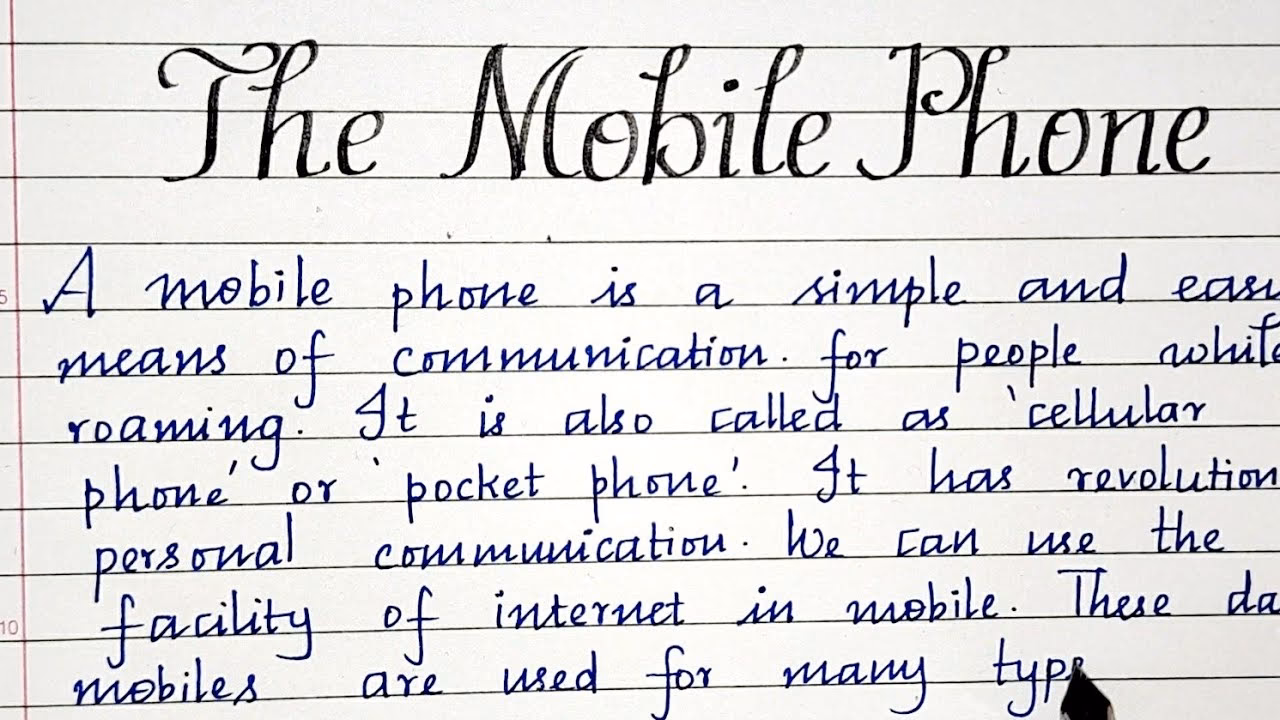 The Mobile Phone
A mobile phone is a simple and easy
means of communication. for people while
roaming. It is also called as 'cellular
phone' or 'pocket phone'. It has revolution
personal communication. We can use the
facility of internet in mobile. These da
mobiles are used for many type
5
10